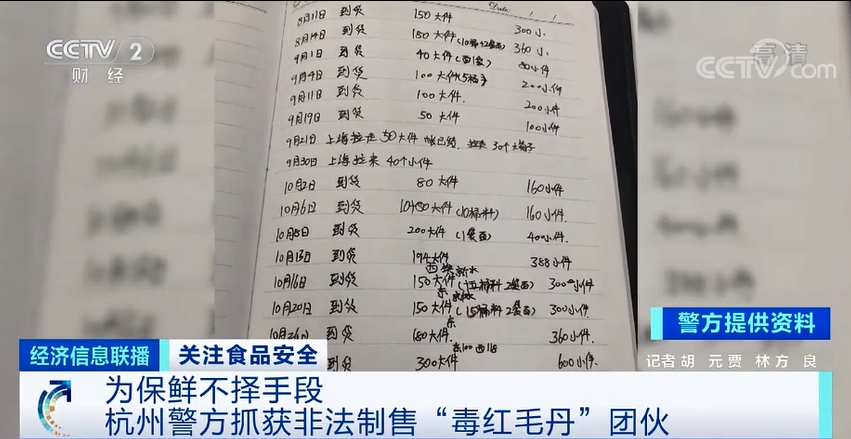 CCTV 2
财经
高清
CCTV.com
Date
8月11日 到货 150大件 300小
8月14日 到货 180大件 360小
9月1日 到货 40大件 80小件
9月4日 到货 100大件 200小件
9月11日 到货 100大件. 200小件
9月19日 到货 50大件 100小件
9月21日 上海拉走50大件 30个大
9月30日 上海拉来 40个小件
10月2日 到货 80大件 160小件
10月6日 到货 大件 160小件.
10月8日 到货 200大件 400小件.
10月13日 到货 194大件 388小件
10月16日 到货 150大件 300小件
10月20日 到货 150大件 300小件.
10月26日 到货 180大件 360小件.
到货 300大件 600小件.
警方提供资料
记者 胡 元 贾 林 方 良
经济信息联播 关注食品安全
为保鲜不择手段
杭州警方抓获非法制售“毒红毛丹”团伙